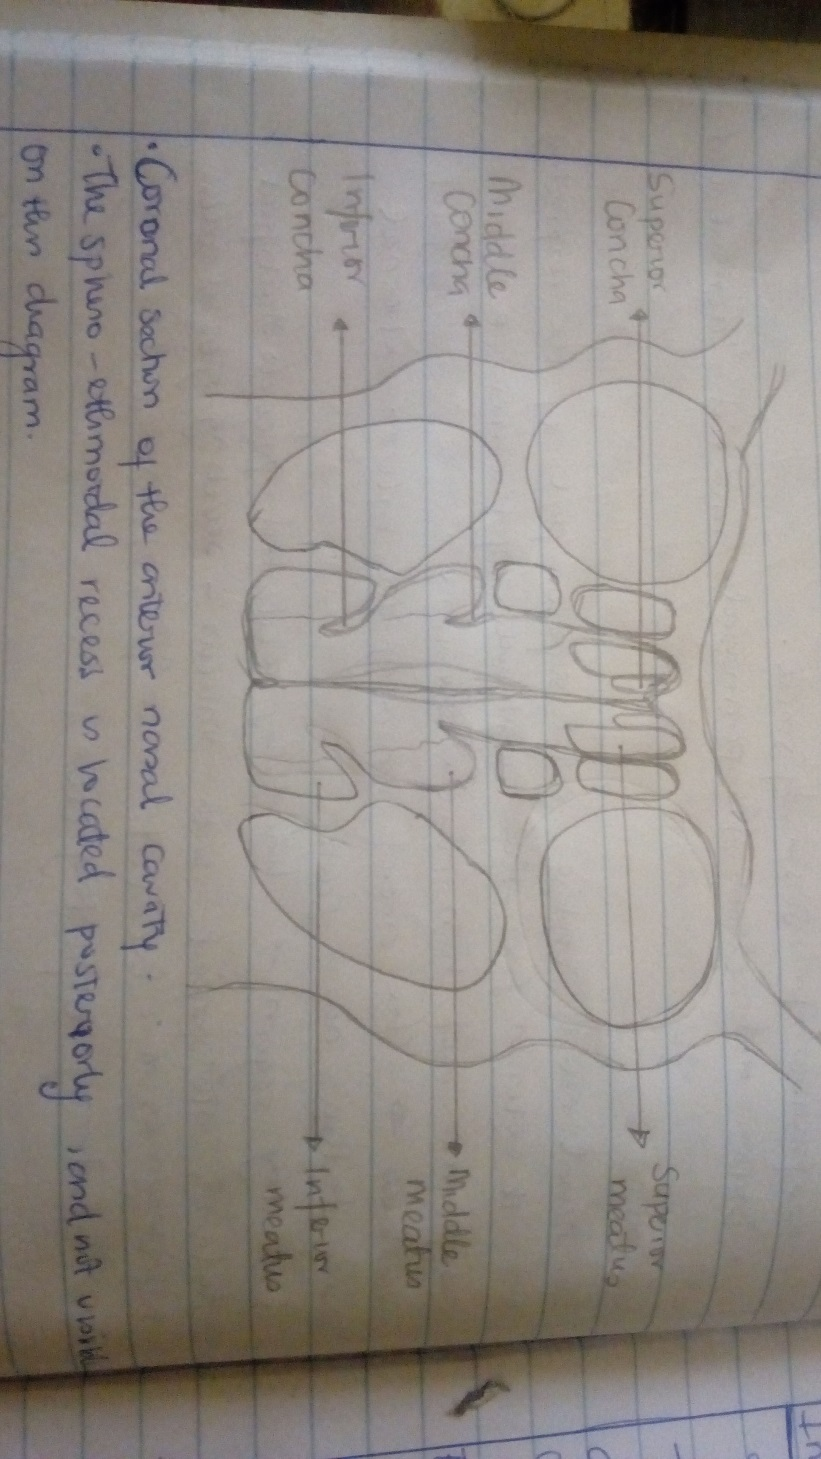 Superior
Concha
Middle
Concha
Inferior
Concha
Superior
meatus
Middle
meatus
Inferior
meatus
• Coronal section of the anterior nasal cavity.
• The spheno-ethmoidal recess is located posteriorly, and not visible
on this diagram.